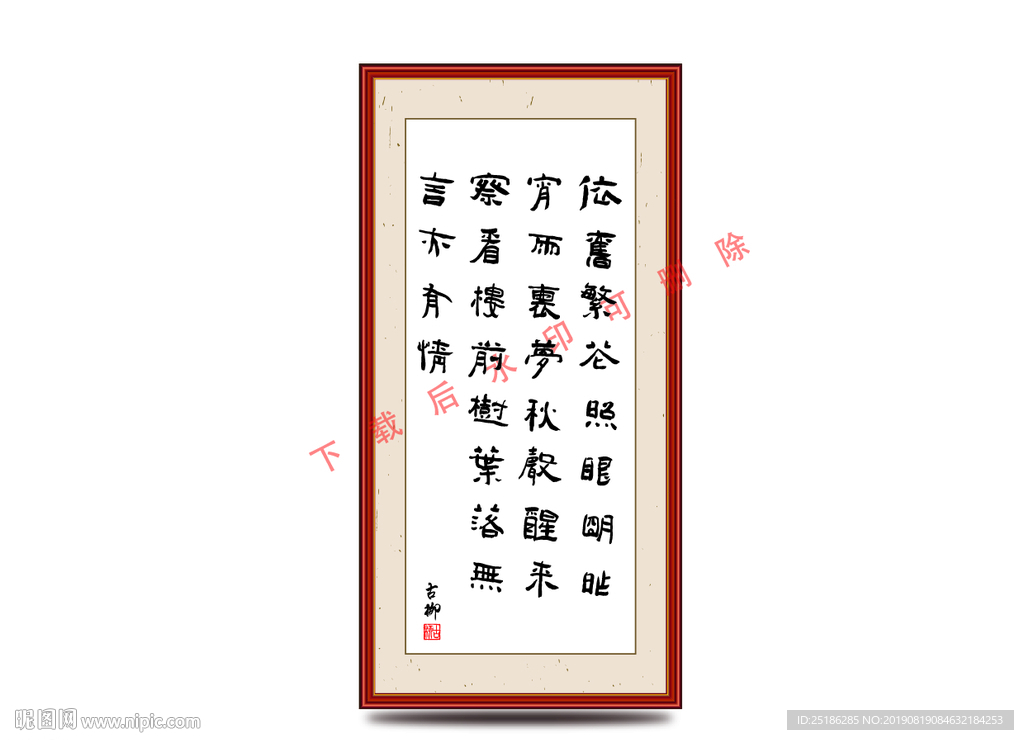 依舊繁花照眼明昨
宵雨裏夢秋聲醒来
察看樓前樹葉落無
言亦有情
古柳
下载后水印可删除
昵图网 www.nipic.com
ID:25186285 NO:20190819084632184253